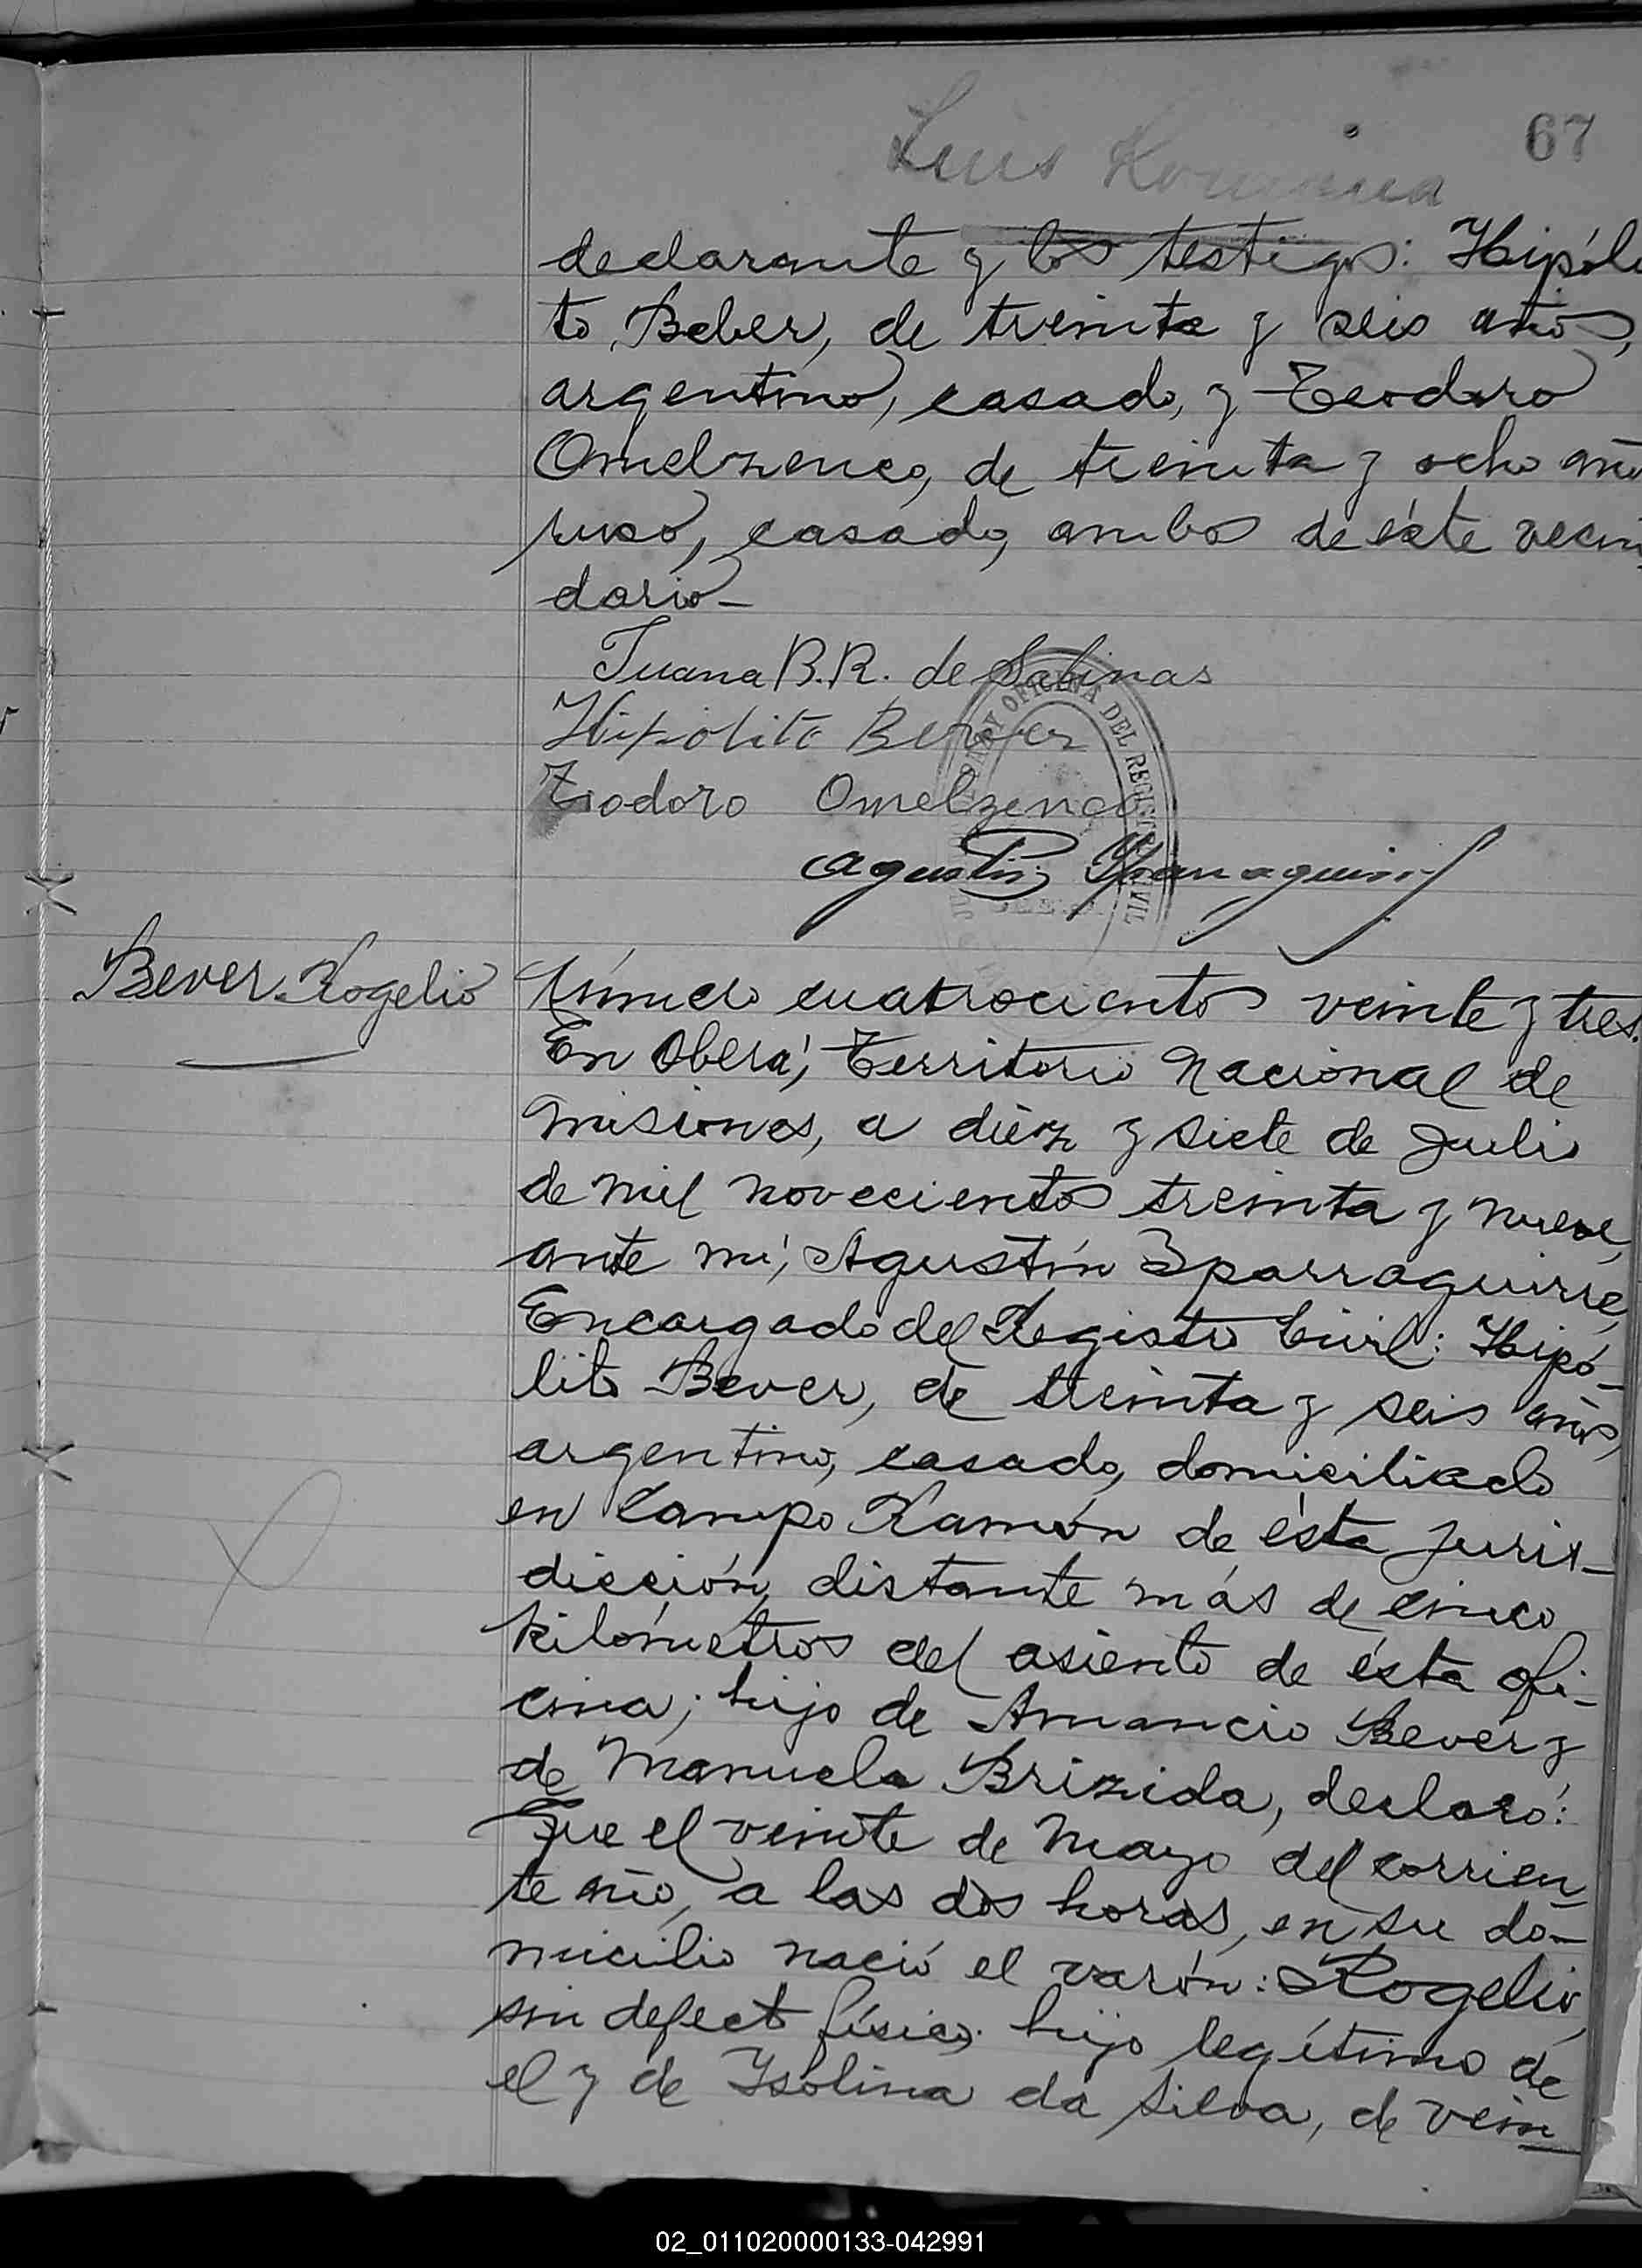 67
Luis
declarante y los testigos: Hipóli
to Beber, de treinta y seis años,
argentino, casado, y Teodoro
Omelzenco, de treinta y ocho año
ruso, casado, ambos de éste vecin
dario-
Juana B.R. de Salinas
Hipolito Bever
Teodoro Omelzenco
Agustin Yparraguirre
OFICINA DEL REGISTRO CIVIL
Bever Rogelio
Número cuatrocientos veinte y tres.
En Oberá, Territorio Nacional de
Misiones, a diéz y siete de Julio
de mil novecientos treinta y nueve,
ante mí, Agustín Yparraguirre,
Encargado del Registro Civil: Hipó-
lito Bever, de treinta y seis años,
argentino, casado, domiciliado
en Campo Ramón de ésta juris-
dicción, distante más de cinco
kilómetros del asiento de ésta ofi-
cina; hijo de Amancio Bever y
de Manuela Brizida, declaró:
Que el veinte de Mayo del corrien
te año, a las dos horas, en su do-
micilio nació el varón: Rogelio,
sin defecto físico, hijo legítimo de
el y de Isolina da Silva, de vein
02_011020000133-042991